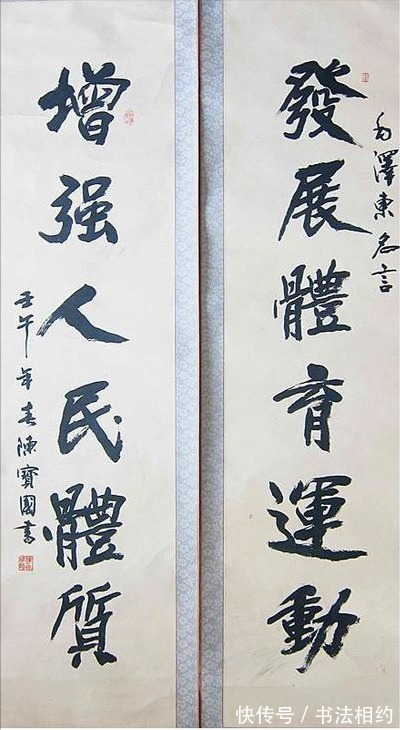 毛澤東名言
發展體育運動
增强人民體质
壬午年春陳寶國書
快传号/书法相约